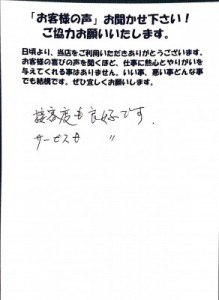 「お客様の声」お聞かせ下さい！
ご協力お願いいたします。
日頃より、当店をご利用いただきありがとうございます。
お客様の喜びの声を聞くほど、仕事に熱心とやりがいを
与えてくれる事はありません。いい事、悪い事どんな事
でも結構です。ぜひ宜しくお願いします。
接客度も良好です。
サービスも 〃